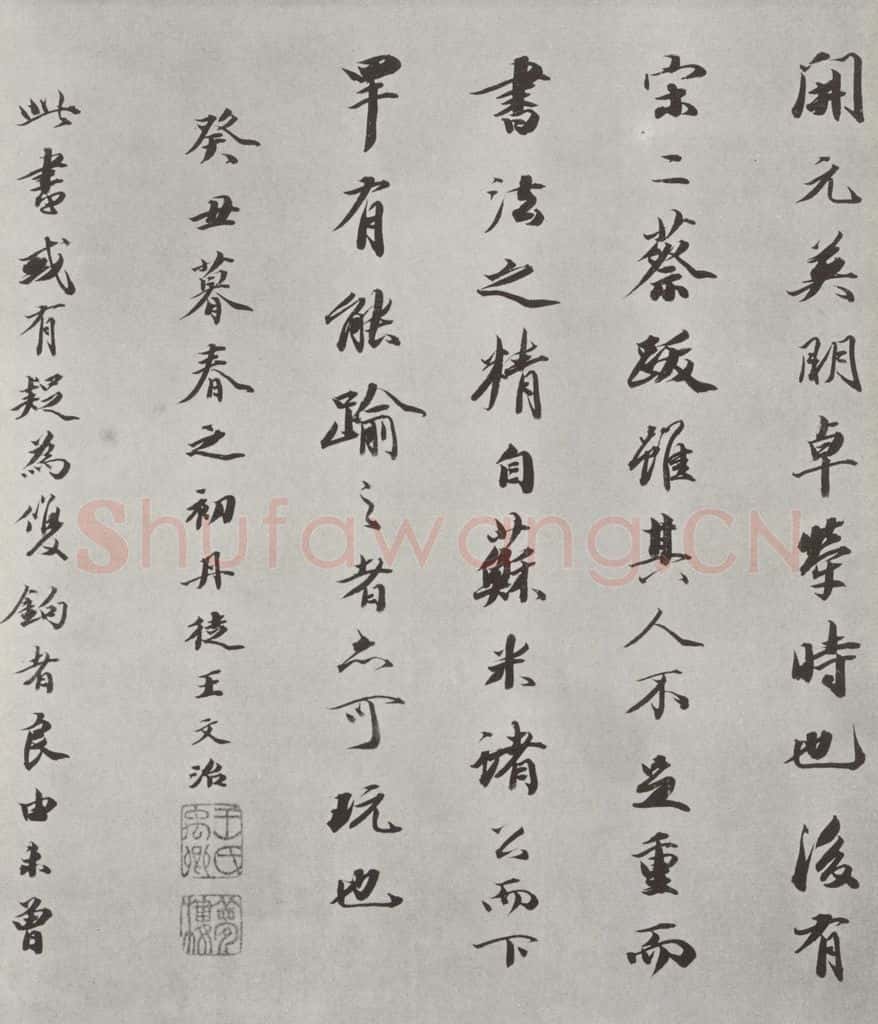 開元英明卓犖時也後有
宋二蔡跋雖其人不足重而
書法之精自蘇米諸公而下
罕有能踰之者亦可玩也
癸丑暮春之初丹徒王文治
王氏禹卿
夢樓
此書或有疑為雙鉤者良由未曾
Shufawang.CN